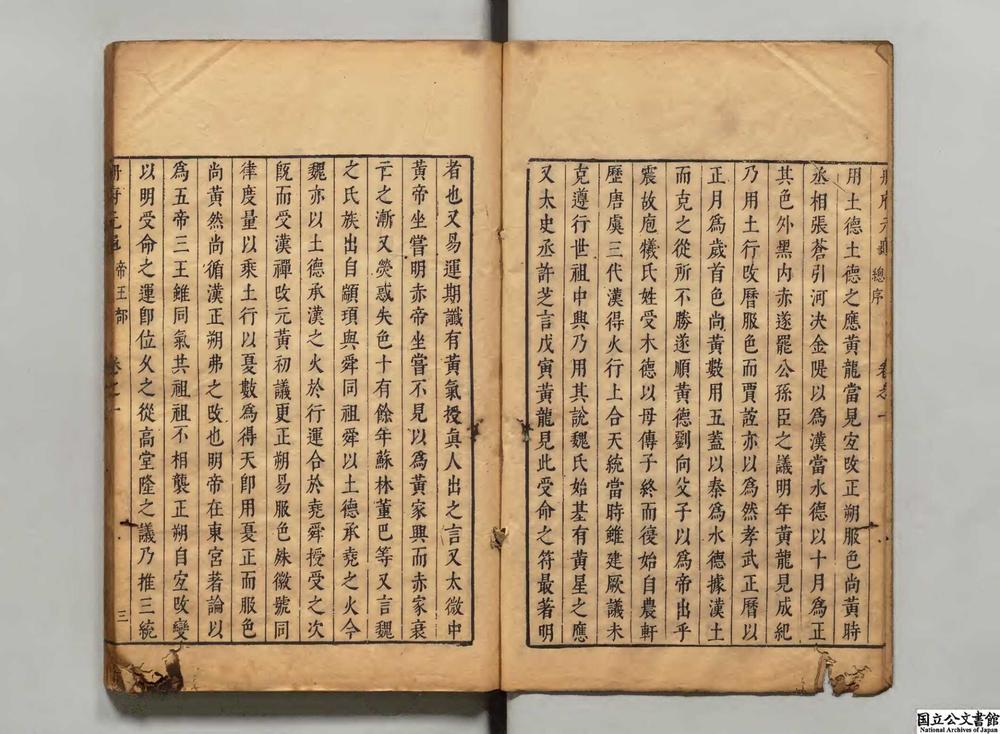 冊府元龜 總序 卷之一
用土德土德之應黃龍當見宐改正朔服色尚黃時
丞相張蒼引河决金隄以為漢當水德以十月為正
其色外黑内赤遂罷公孫臣之議明年黃龍見成紀
乃用土行改曆服色而賈誼亦以為然孝武正曆以
正月為歲首色尚黃數用五蓋以秦為水德據漢土
而克之從所不勝遂順黃德劉向父子以為帝出乎
震故庖犧氏姓受木德以母傳子終而復始自農軒
歷唐虞三代漢得火行上合天統當時雖建厥議未
克遵行世祖中興乃用其說魏氏始基有黃星之應
又太史丞許芝言戊寅黃龍見此受命之符最著明
者也又易運期讖有黃氣授真人出之言又太微中
黃帝坐嘗明赤帝坐嘗不見以為黃家興而赤家衰
亡之漸又熒惑失色十有餘年蘇林董巴等又言魏
之氏族出自顓頊與舜同祖舜以土德承堯之火今
魏亦以土德承漢之火於行運合於堯舜授受之次
旣而受漢禪改元黃初議更正朔易服色殊徽號同
律度量以乘土行以夏數為得天卽用夏正而服色
尚黃然尚循漢正朔弗之改也明帝在東宮著論以
為五帝三王雖同氣共祖祖不相襲正朔自宐改變
以明受命之運卽位久之從高堂隆之議乃推三統
冊府元龜 帝王部 卷之一 三
国立公文書館
National Archives of Japan